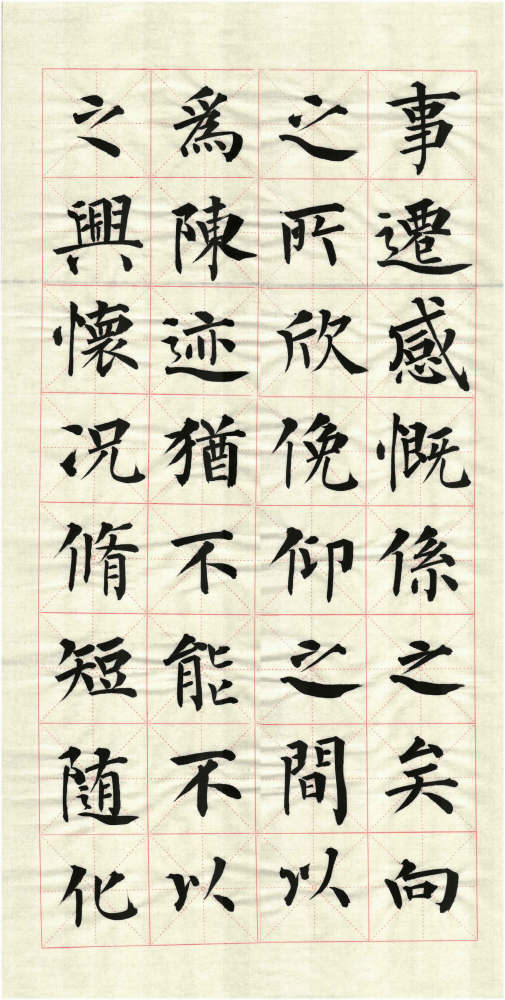 事遷感慨係之矣向
之所欣俛仰之間以
為陳迹猶不能不以
之興懷况脩短随化